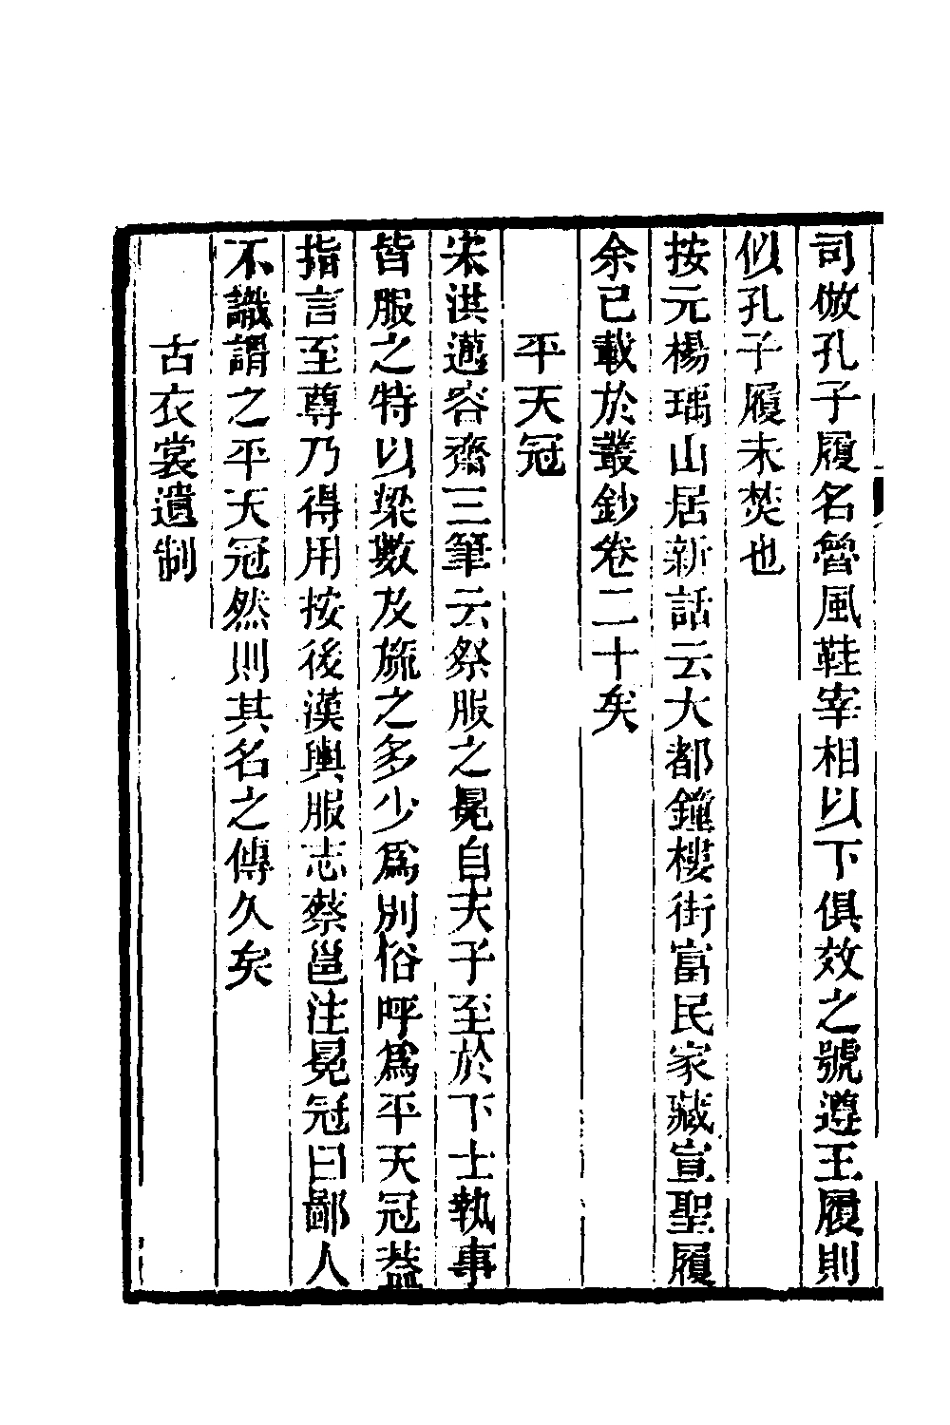 司倣孔子履名魯風鞋宰相以下俱效之號遵王履則
似孔子履未焚也
按元楊瑀山居新話云大都鐘樓街富民家藏宣聖履
余已載於叢鈔卷二十矣
平天冠
宋洪邁容齋三筆云祭服之冕自天子至於下士執事
皆服之特以梁數及旒之多少爲別俗呼爲平天冠葢
指言至尊乃得用按後漢輿服志蔡邕注冕冠曰鄙人
不識謂之平天冠然則其名之傳久矣
古衣裳遺制